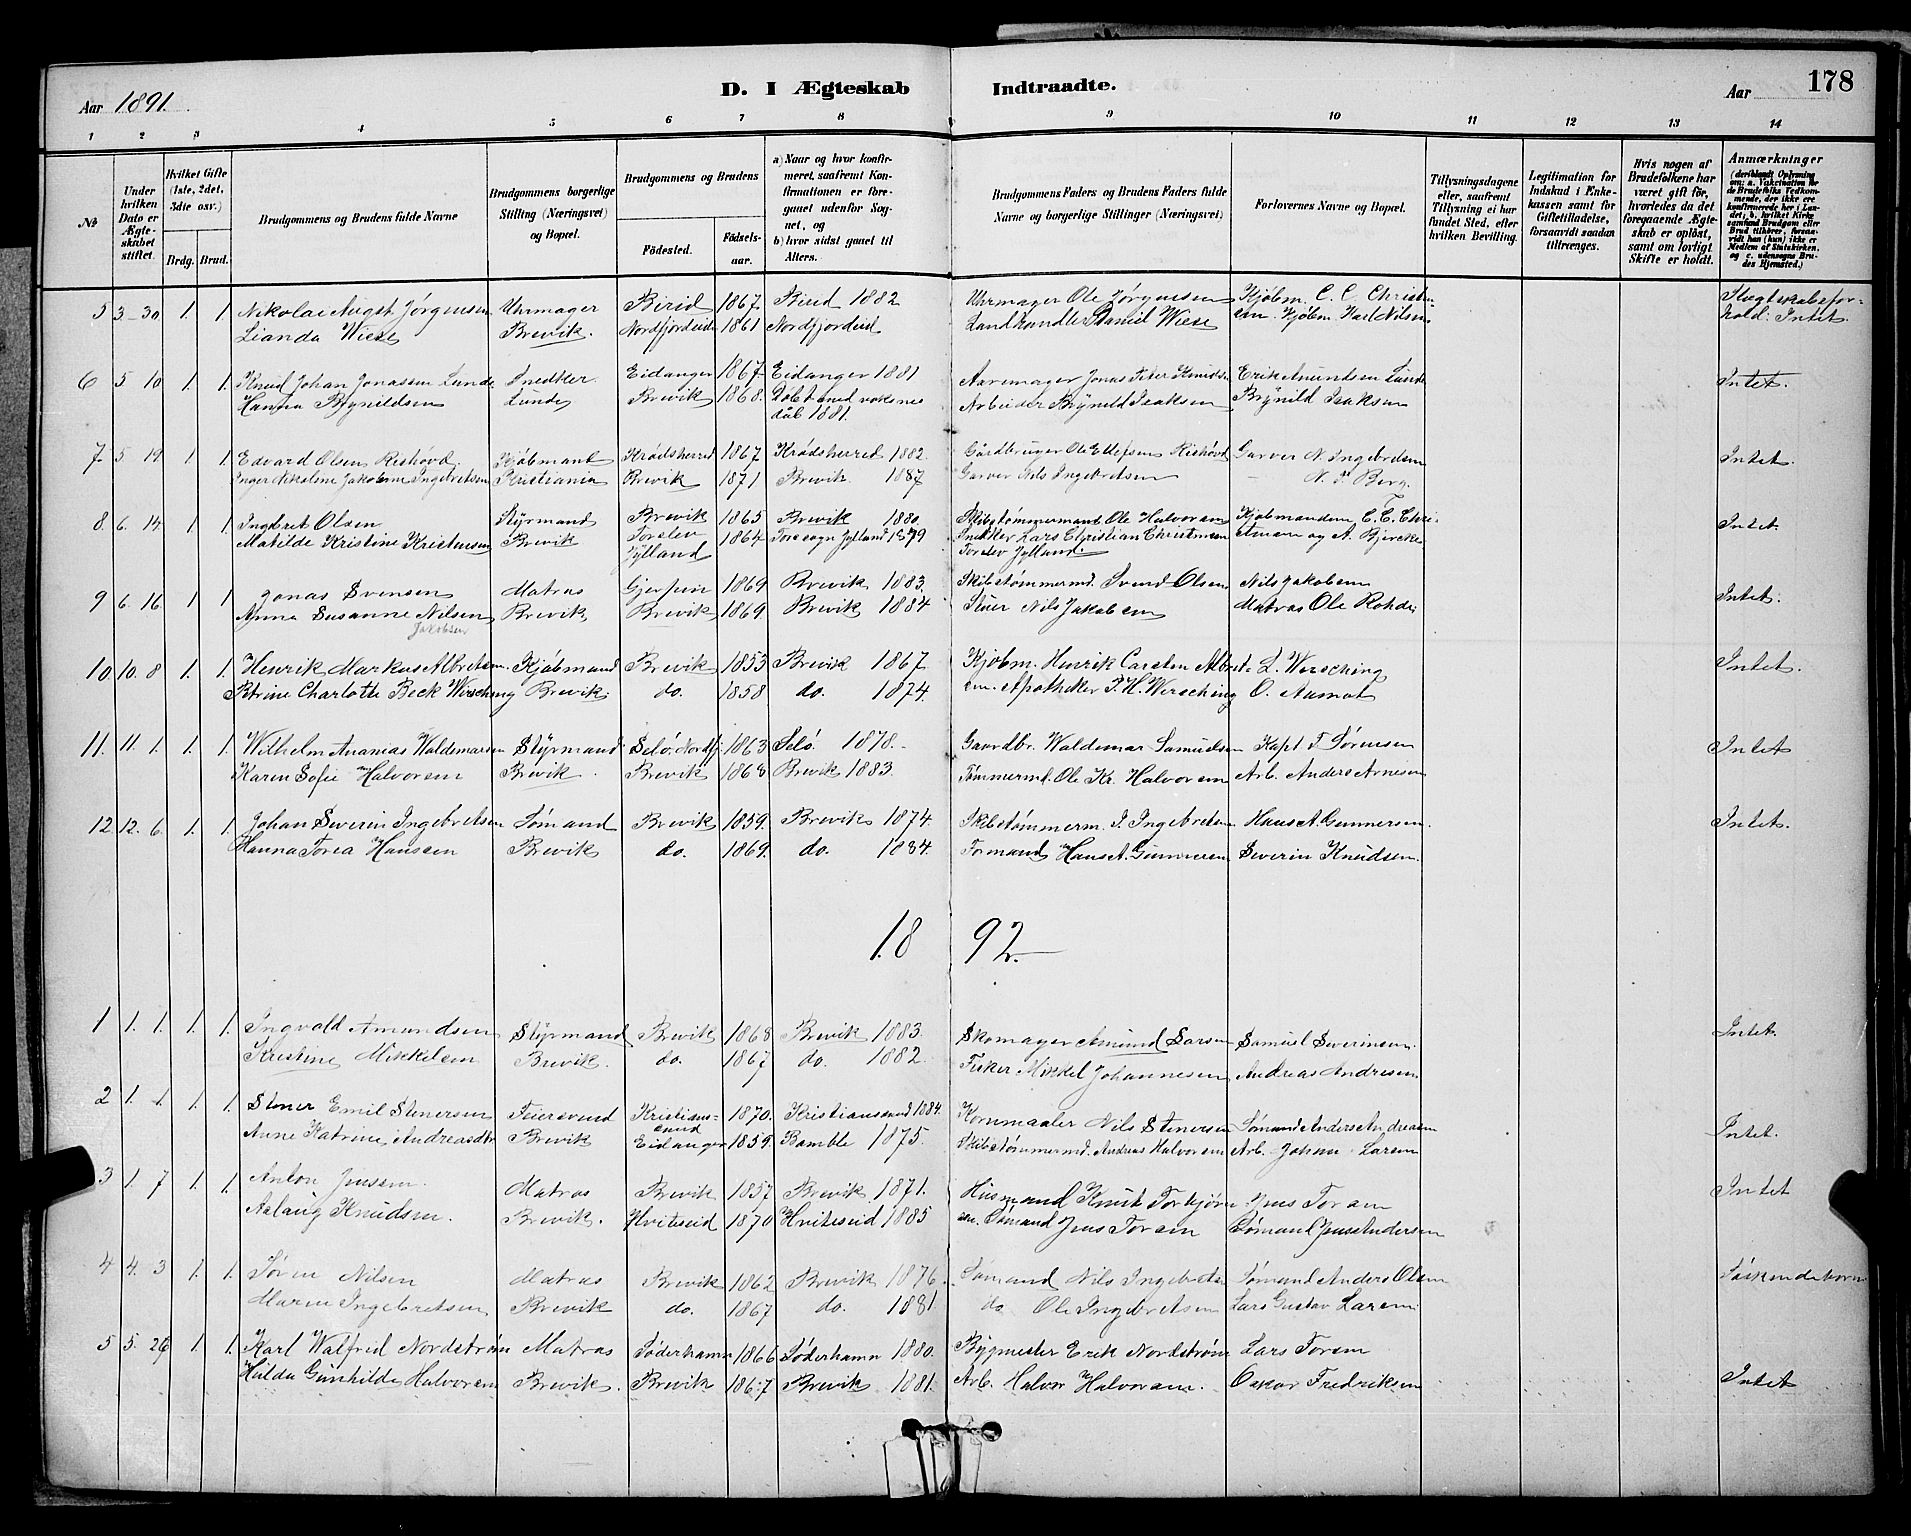 Aar 1891.
D. I Ægteskab Indtraadte.
Aar
178
1 2 3 4 5 6 7 8 9 10 11 12 13 14
№
Under hvilken Dato er Ægteskabet stiftet.
Hvilket Gifte (1ste, 2det, 3die osv.)
Brdg. Brud.
Brudgommens og Brudens fulde Navne
Brudgommens borgerlige Stilling (Næringsvei) og Bopæl.
Brudgommens og Brudens
Födested.
Födsels-aar.
a) Naar og hvor konfirmeret, saafremt Konfirmationen er foregaaet udenfor Sognet, og
b) hvor sidst gaaet til Alters.
Brudgommens Faders og Brudens Faders fulde Navne og borgerlige Stillinger (Næringsvei)
Forlovernes Navne og Bopæl.
Tillysningsdagene eller, saafremt Tillysning ei har fundet Sted, efter hvilken Bevilling.
Legitimation for Indskud i Enkekassen samt for Giftetilladelse, forsaavidt saadan tiltrænges.
Hvis nogen af Brudefolkene har været gift før, hvorledes da det foregaaende Ægteskab er opløst, samt om lovligt Skifte er holdt.
Anmærkninger (deriblandt Oplysning om: a. Vakcination for de Brudefolks Vedkommende, der ikke ere konfirmerede her i Landet, b. hvilket Kirkesamfund Brudgom eller Brud tilhører, forsaavidt han (hun) ikke er Medlem af Statskirken, og c. udensogns Brudes Hjemsted.)
5 3-30 1 1. Nikolai Augst Jørgensen Uhrmager Birid 1867. Birid 1882 Uhrmager Ole Jørgensen Kjøbm. C. C. Christen- Slegtskabsfor-
Lianda Wiese Brevik. Nordfjordeid 1861 Nordfjordeid Landhandler Daniel Wiese sen. Kjøbm. Karl Nilsen hold: Intet.
6 5 10 1. 1. Knud Johan Jonassen Lunde Snedker. Eidanger 1867. Eidanger 1881 Aaremager Jonas Peter Knudsen Erik Amundsen Lunde Intet.
Hanna Brynildsen Lunde Brevik 1868. Døbt med voksnedåb 1881. Arbeider Brynild Isaksen Brynild Isaksen
7. 5 19 1 1. Edvard Olsen Rishövd. Kjøbmand Krødsherred 1867 Krødsherred 1882. Gårdbruger Ole Ellefsen Rishövd Garver N. Ingebretsen Intet.
Inger Nikoline Jakobine Ingebretsen Kristiania Brevik 1871 Brevik 1887 Garver Nils Ingebretsen N. P. Berg.
8. 6. 14 1 1. Ingebret Olsen Styrmand Brevik 1865 Brevik 1880. Skibstømmermand Ole Halvorsen Kjøbmændene C. C. Chri- Intet
Matilde Kristine Kristensen Brevik Torslev Jylland 1864 Torsl. sogn Jylland 1879 Snedker Lars Christian Christensen Torslev Jylland. stensen og A. Bjercke
9 6. 16 1 1 Jonas Svensen Matros Gjerpen 1869 Brevik 1883. Skibstømmermd. Svend Olsen Nils Jakobsen Intet.
Anna Susanne Nilsen Brevik Brevik 1869. Brevik 1884 Stuer Nils Jakobsen Matros Ole Rohde
Jakobsen
10 10. 8 1. 1. Henrik Markus Albretsen. Kjøbmand Brevik 1853 Brevik 1867 Kjøbm. Henrik Carsten Albret- L. Wersching Intet.
Petrine Charlotte Beck Wersching Brevik do. 1858 do. 1874. sen. Apotheker P. H. Wersching O. Aamot
11. 11. 1. 1. 1. Wilhelm Ananias Waldemarsen Styrmand Selö, Nordfj. 1863 Selö. 1878. Gaardbr. Waldemar Samuelsen Kapt T. Sörensen Intet
Karen Sofie Halvorsen Brevik. Brevik 1868 Brevik 1883. Tømmermd. Ole Kr. Halvorsen Arb. Anders Arnesen
12 12. 6. 1. 1. Johan Severin Ingebretsen Sømand Brevik 1859. Brevik 1874 Skibstømmerm. J. Ingebretsen Hans A. Gunnersen. Intet.
Hanna Torea Hansen Brevik do. 1869. do. 1884. Formand Hans A. Gunnersen Severin Knudsen.
18 92.
1 1. 1. 1. 1. Ingvald Amundsen Styrmand Brevik 1868 Brevik 1883. Skomager Amund Larsen Samuel Severinsen. Intet.
Kristine Mikkelsen Brevik. do. 1867 do. 1882. Fisker Mikkel Johannesen Andreas Andresen
2 1. 1. 1. 1. Stener Emil Stenersen Feiersvend Kristianssund 1870. Kristianssund 1884. Kornmaaler Nils Stenersen Sømand Anders Andreasen Intet.
Anne Katrine Andreasdtr Brevik Eidanger 1859. Bamble 1875. Skibstømmermd. Andreas Halvorsen Arb. Johan Larsen
3 1. 7 1. 1. Anton Jensen. Matros Brevik 1857 Brevik 1871. Husmand Knut Torbjørn- Jens Torsen Intet
Aslaug Knudsen. Brevik. Hviteseid 1870 Hviteseid 1885 sen. Sømand Jens Torsen Sømand Jens Andersen
4 4. 3 1. 1. Søren Nilsen Matros Brevik 1862 Brevik 1876. Sømand Nils Ingebretsen Sømand Anders Olsen Søskendebørn
Maren Ingebretsen Brevik do. 1867 do. 1881 do Ole Ingebretsen Lars Gustav Larsen
5 5. 26 1. 1. Karl Walfrid Nordström Matros Söderhamn 1866 Söderhamn 1880. Bygmester Erik Nordstrøm Lars Torsen
Hilda Gunhilde Halvorsen Brevik. Brevik 1867 Brevik 1881. Arb. Halvor Halvorsen. Oskar Fredriksen Intet